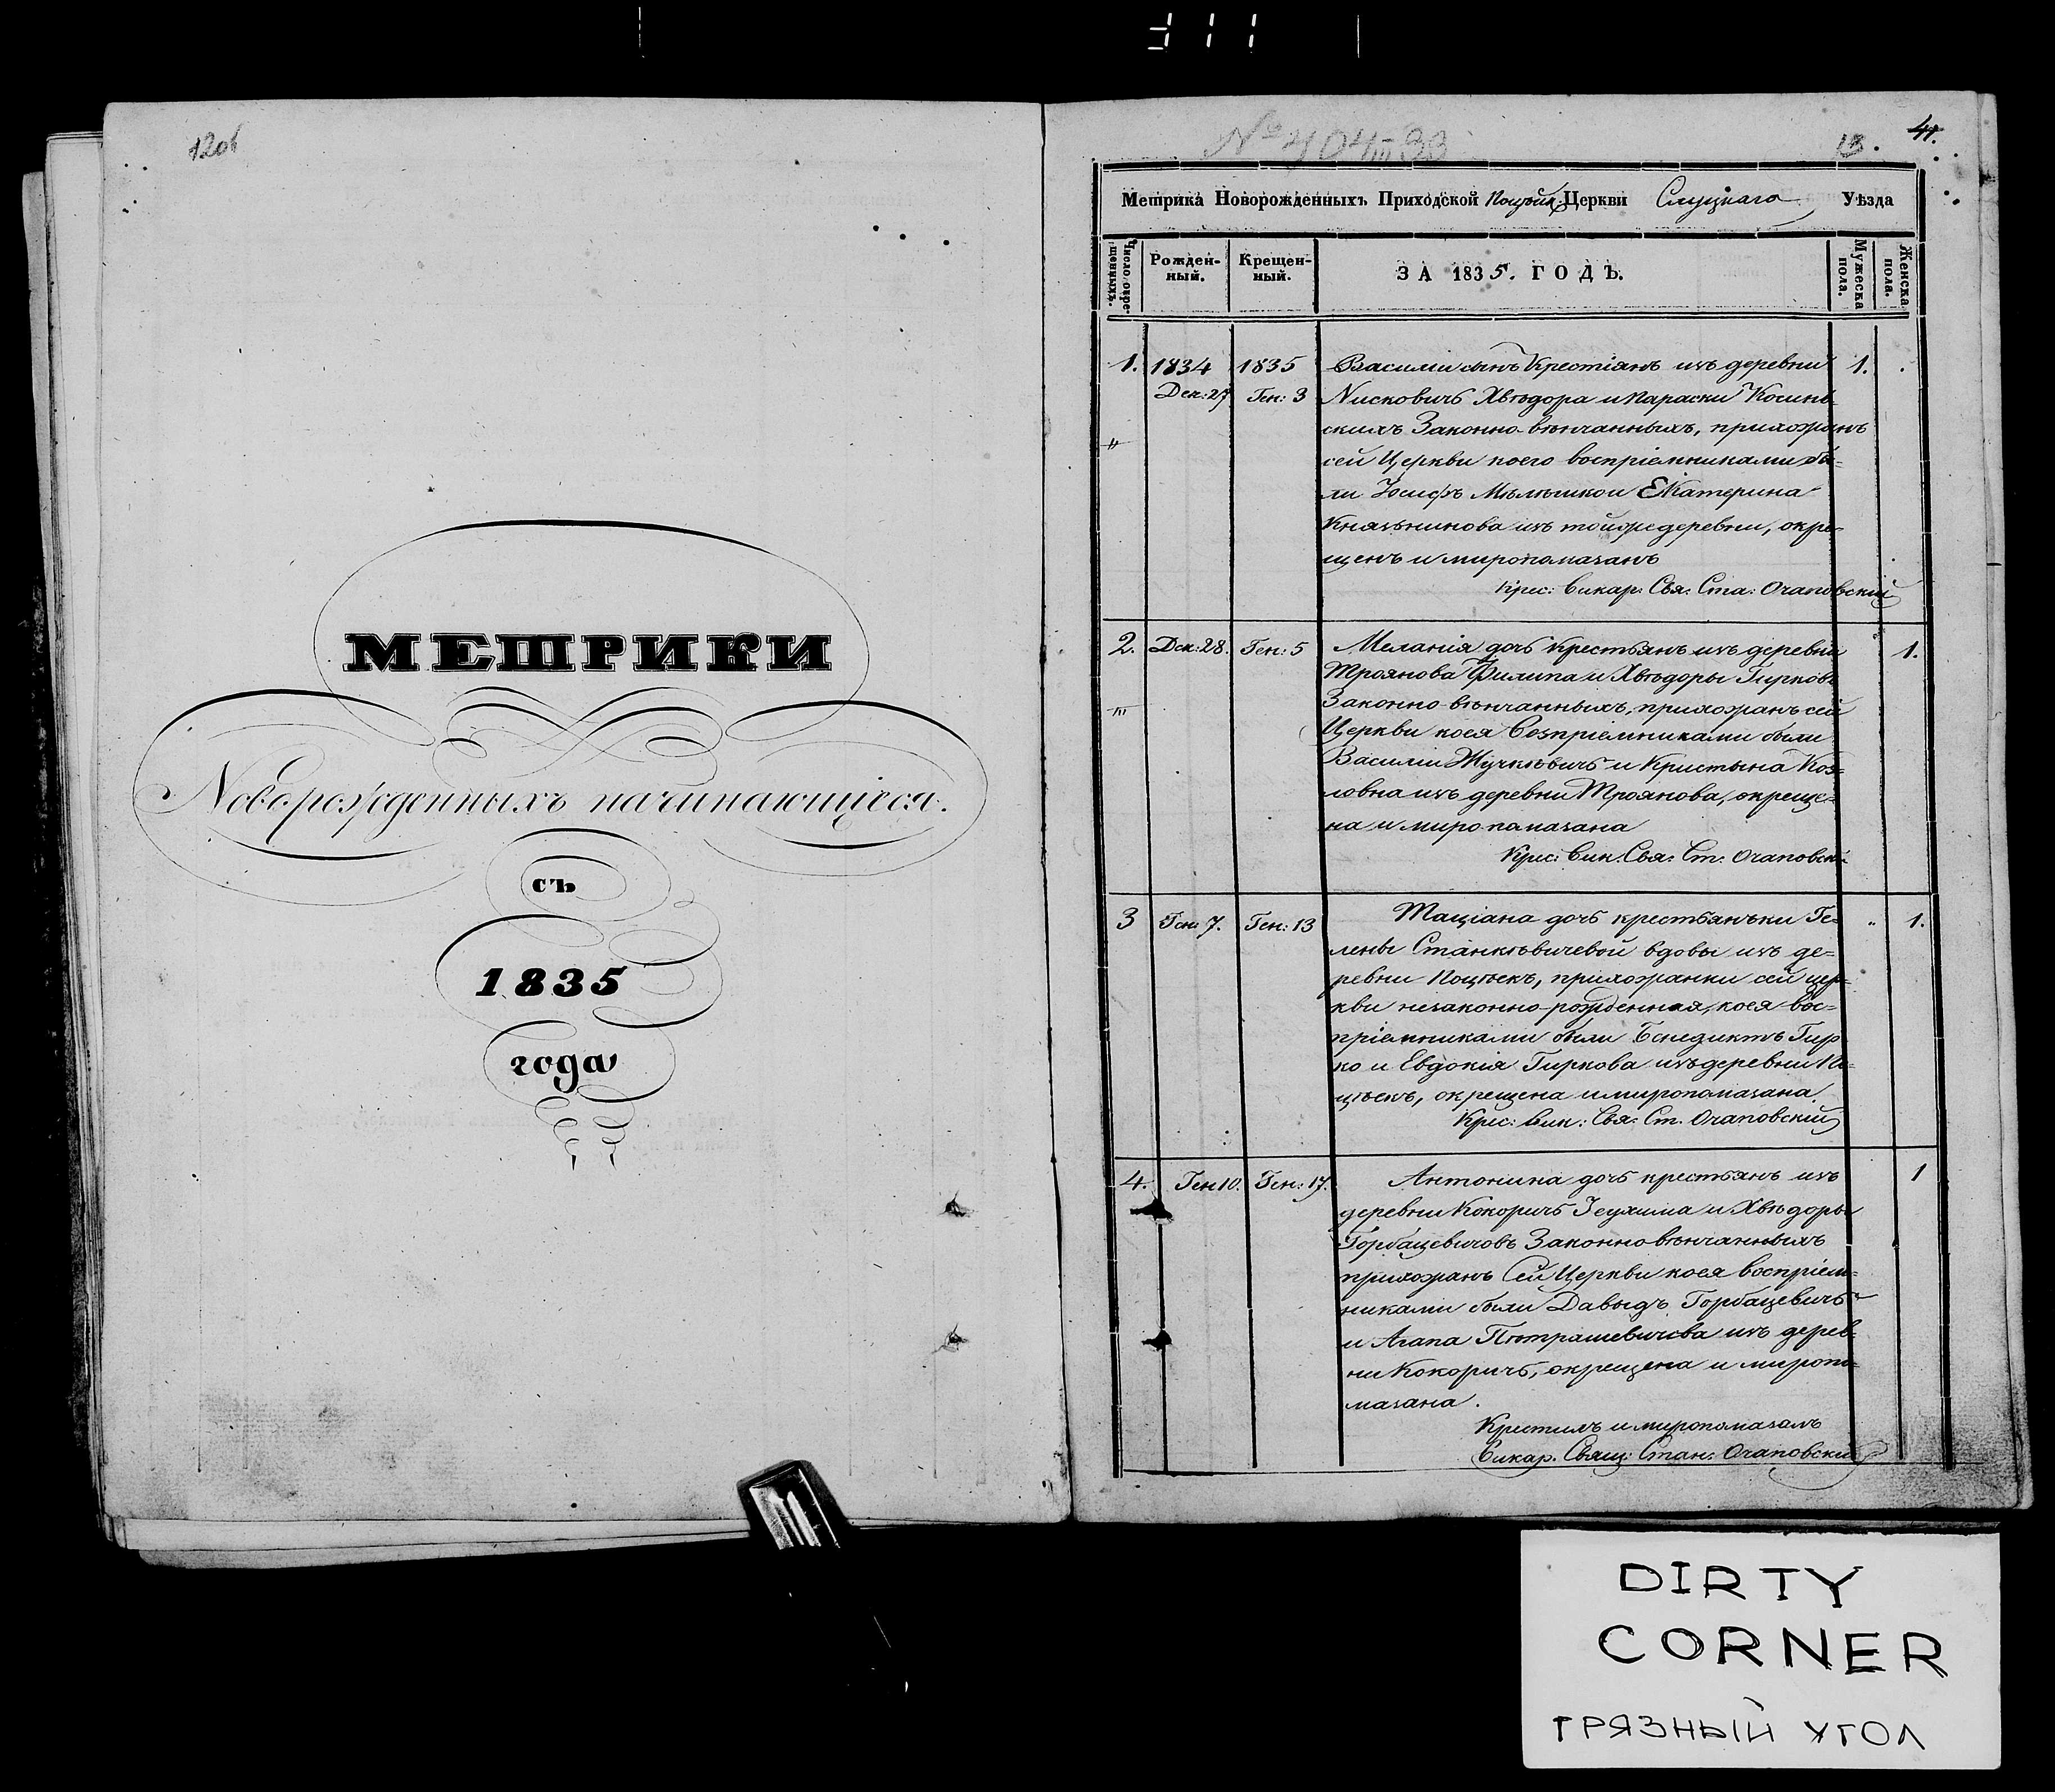 120б
МЕТРИКИ
Новорожденныхъ начинающіеся.
съ
1835
года
13. 41.
Метрика Новорожденныхъ Приходской Поцѣйк: Церкви Слуцкаго Уѣзда
Число окрещенныхъ.
Рожденный.
Крещенный.
ЗА 1835. ГОДЪ.
Мужеска пола.
Женска пола.
1. 1834 1835 Василіи сынъ Крестіянъ изъ деревни 1.
Дек: 27 Ген: 3 Нисковичъ Хвѣдора и Параски Косинь-
скихъ Законно-вѣнчанныхъ, прихожанъ
сей Церкви коего воспріемниками бы-
ли Іосифъ Мѣлѣшко и Екатерина
Князьникова изъ тойже деревни, окре-
щенъ и миропомазанъ
Крес: Викар: Свя: Ста: Очаповскій
2. Дек: 28. Ген: 5 Меланія дочь крестьянъ изъ деревни 1.
Троянова Филипа и Хвѣдоры Гирковъ
Законно-вѣнчанныхъ, прихожанъ сей
Церкви коея Воспріемниками были
Василіи Жучкѣвичъ и Кристына Коз-
ловна изъ деревни Троянова, окреще-
на и миропомазана
Крес: Вик: Свя: Ст: Очаповскі
3 Ген: 7. Ген: 13 Таціана дочь крестьянъки Ге- " 1.
лены Станкѣвичевой вдовы изъ де-
ревни Поцѣекъ, прихожанки сей цер-
кви незаконно-рожденная, коея вос-
пріемниками были Бенедиктъ Гир
ко и Евдокія Гиркова изъ деревни По-
цѣекъ, окрещена и миропомазана
Крес: Вик: Свя: Ст. Очаповскій
4. Ген 10. Ген: 17. Антонина дочь крестьянъ изъ 1
деревни Кокоричъ Іеухима и Хвѣдоры
Горбацевичовъ Законновѣнчанныхъ
прихожанъ Сей Церкви коея воспріем-
никами были Давыдъ Горбацевичъ
и Агапа Пѣтрашевичева изъ дерев-
ни Кокоричъ, окрещена и миропо-
мазана.
Крестилъ и миропомазалъ
Викар. Свящ: Стан: Очаповскій
DIRTY
CORNER
ГРЯЗНЫЙ УГОЛ